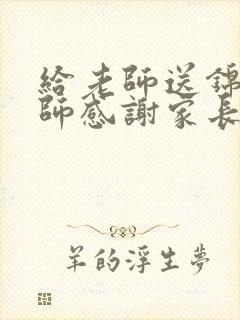 給老師送錦
師感謝家長
羊的浮生夢